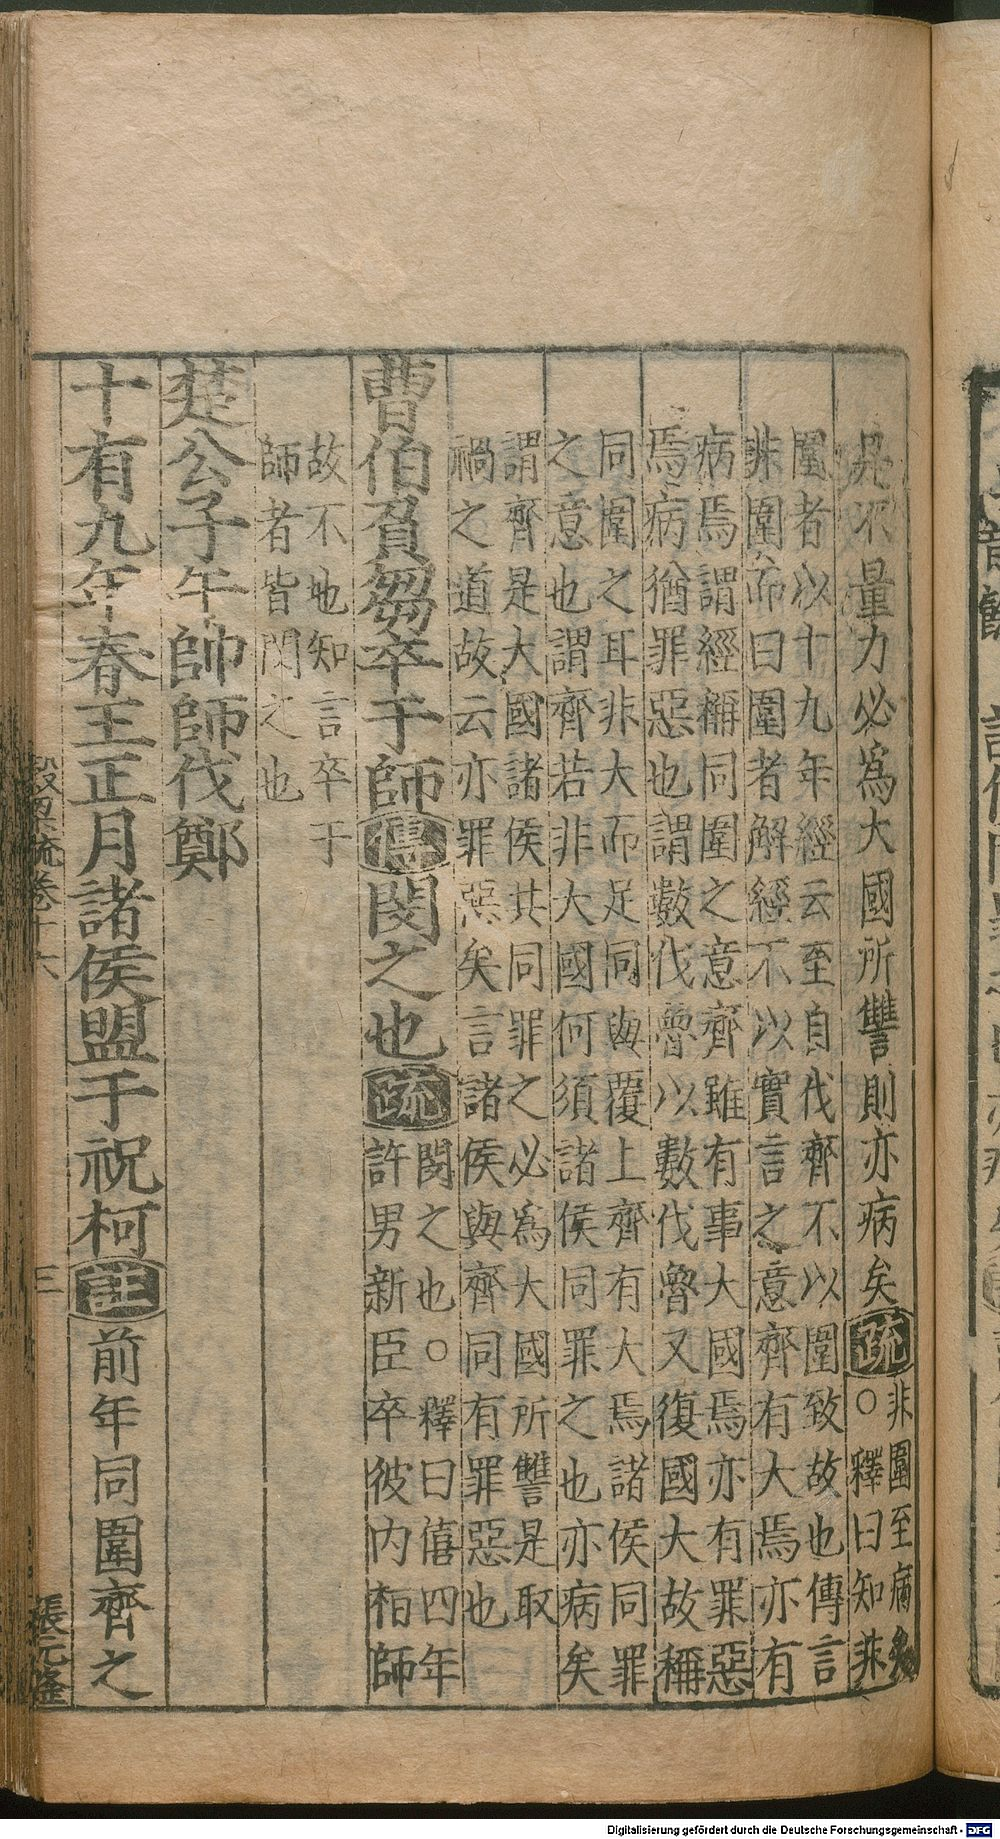 是不量力必爲大國所讐則亦病矣疏
非圍至病矣
○釋曰知非
圍者以十九年經云至自伐齊不以圍致故也傳言
非圍而曰圍者解經不以實言之意齊有大焉亦有
病焉謂經稱同圍之意齊雖有事大國焉亦有罪惡
焉病猶罪惡也謂數伐魯以數伐魯又復國大故稱
同圍之耳非大而足同與覆上齊有大焉諸侯同罪
之意也謂齊若非大國何須諸侯同罪之也亦病矣
謂齊是大國諸侯共同罪之必爲大國所讐是取
禍之道故云亦罪惡矣言諸侯與齊同有罪惡也
曹伯負芻卒于師傳閔之也疏
閔之也○釋曰僖四年
許男新臣卒彼內柏師
故不地知言卒于
師者皆閔之也
楚公子午帥師伐鄭
十有九年春王正月諸侯盟于祝柯註前年同圍齊之
穀梁疏卷十六
三
張元隆
Digitalisierung gefördert durch die Deutsche Forschungsgemeinschaft - DFG